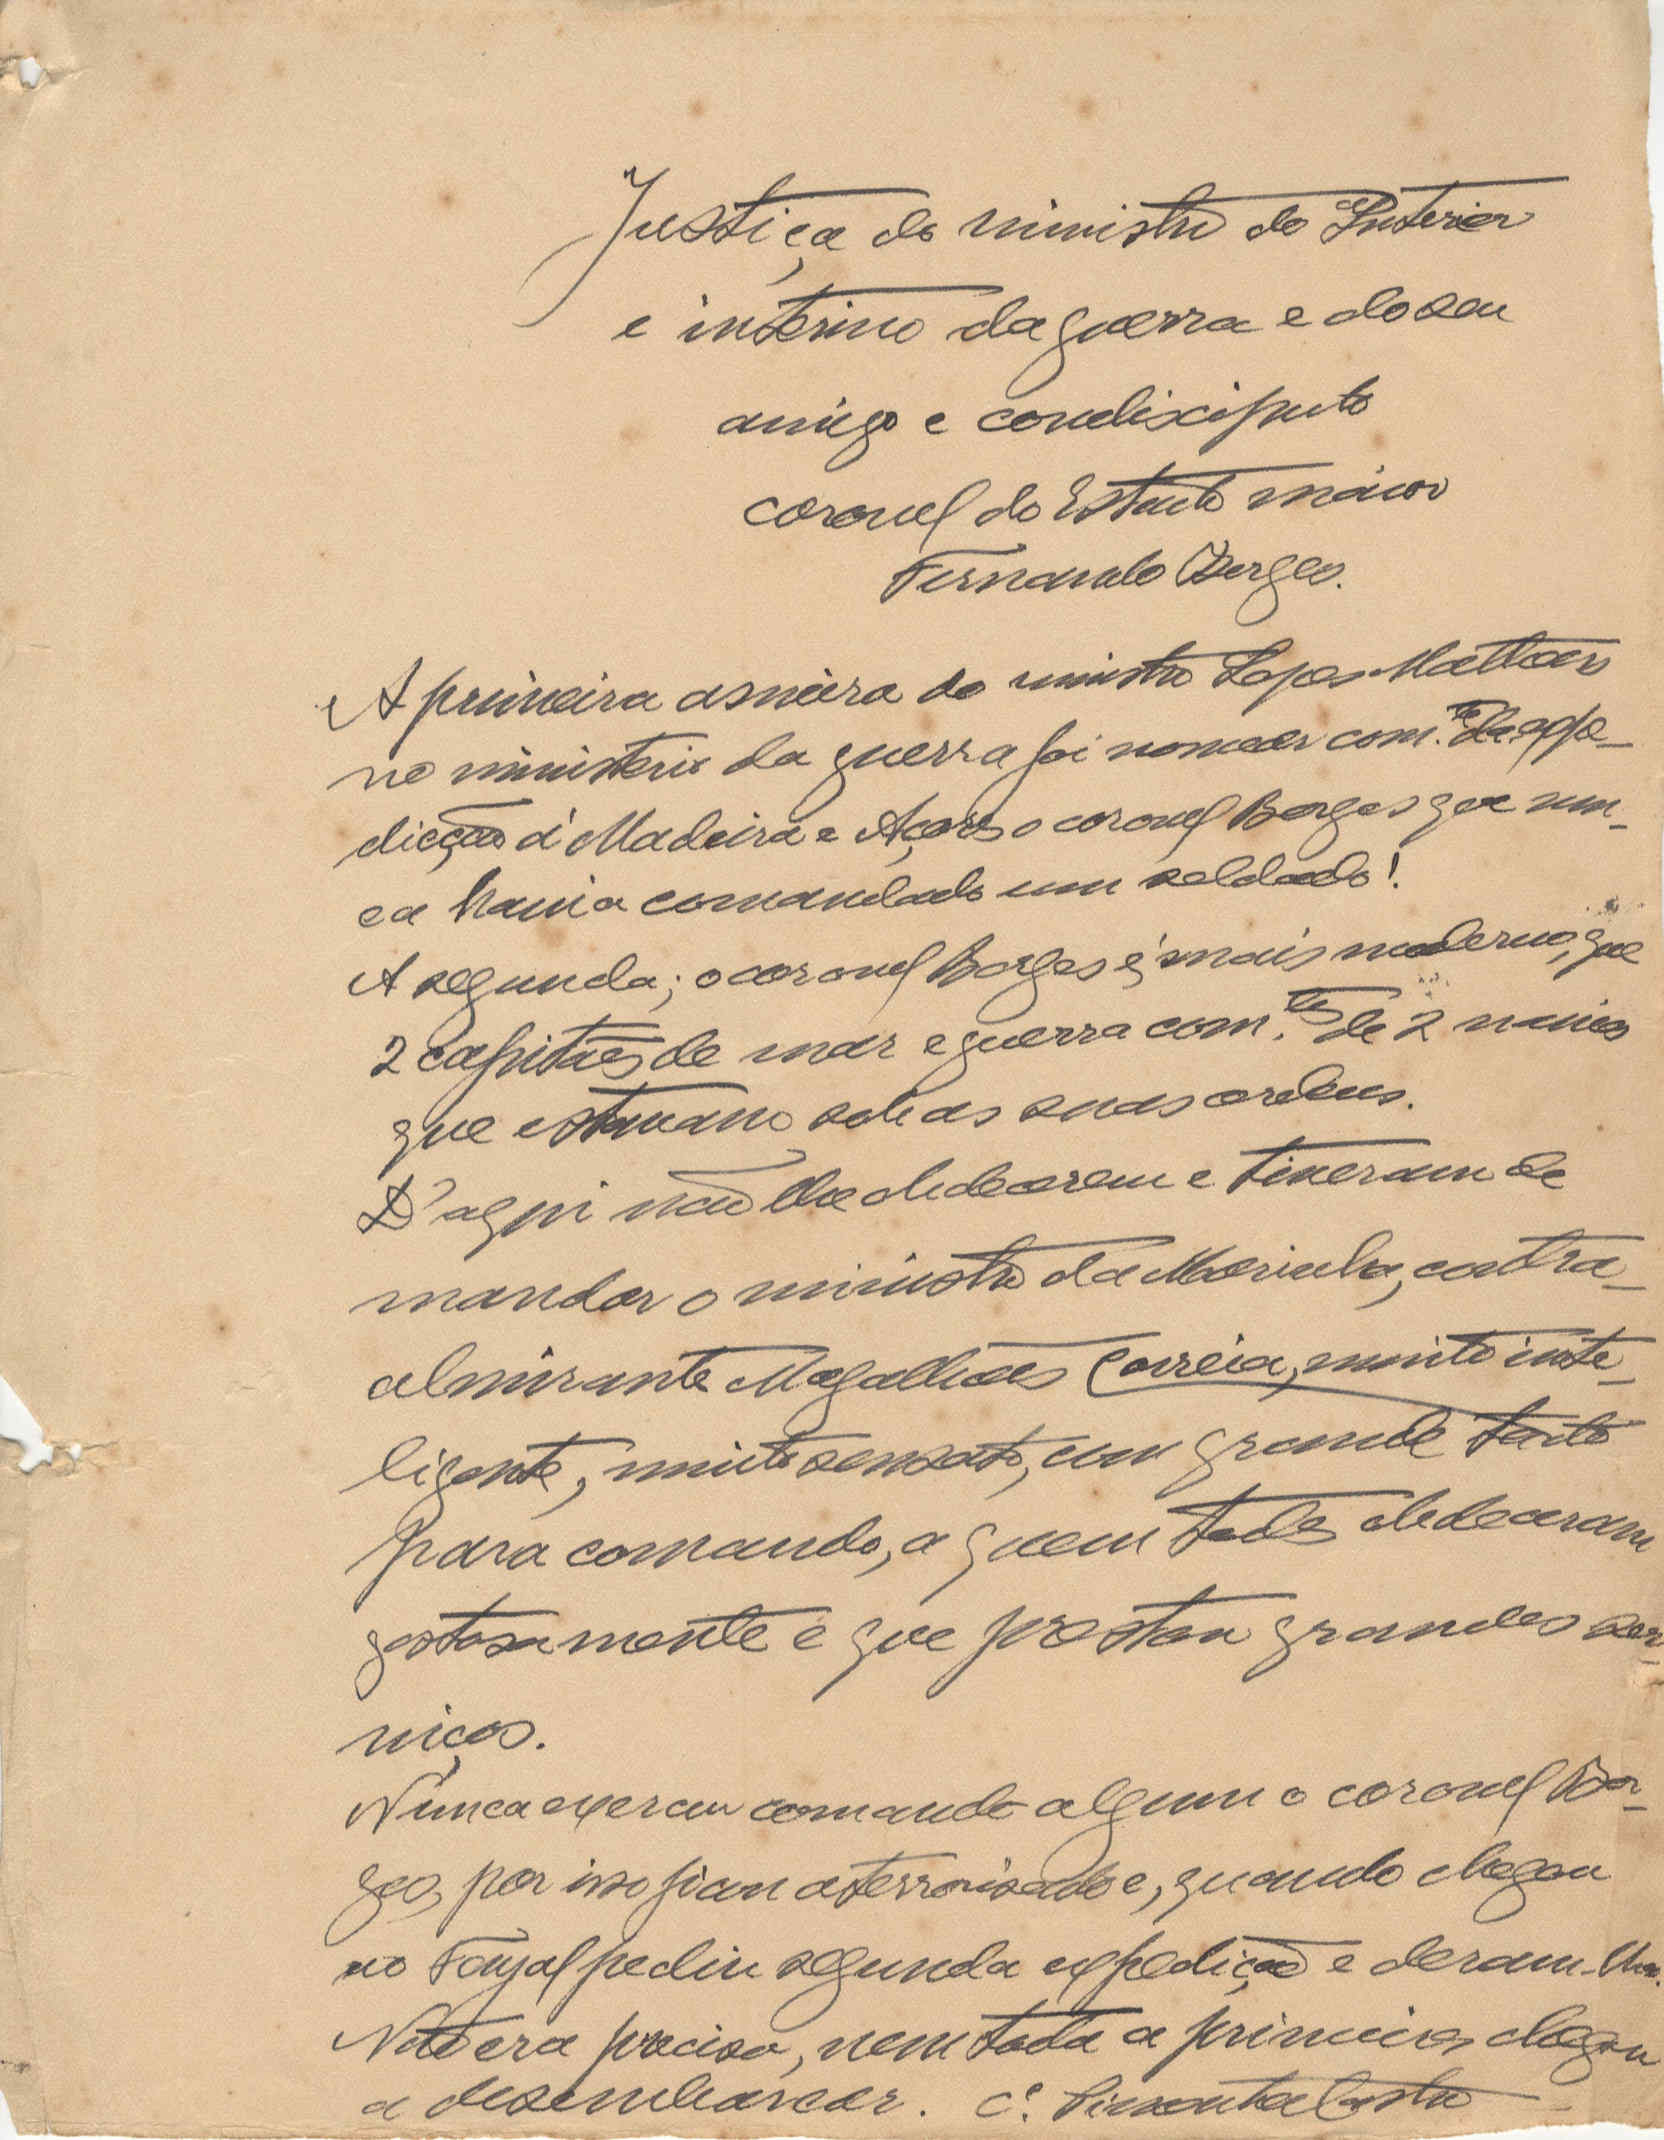 Justiça do ministro do Interior
e interino da guerra e do seu
amigo e condiscipulo
coronel do Estado maior
Fernando Borges.
A primeira asneira do ministro Lopes Matheus
no ministerio da guerra foi nomear com.te da expe-
dicção á Madeira e Açores o coronel Borges que nun-
ca havia comandado um soldado!
A segunda; o coronel Borges é mais moderno, que
2 capitães de mar e guerra com.tes de 2 navios
que estavam sob as suas ordens.
D'aqui não lhe obedecerem e tiveram de
mandar o ministro da Marinha, contra-
almirante Magalhães Correia, muito inte-
ligente, muito sensato, com grande tacto
para comando, a quem todos obedeceram
gostosamente e que prestou grandes ser-
viços.
Nunca exerceu comando algum o coronel Bor-
ges, por isso ficou aterrorisado e, quando chegou
no Fayal pediu segunda expedição e deram-lha.
Não era precisa, nem toda a primeira chegou
a desembarcar. C. Pimenta Castro